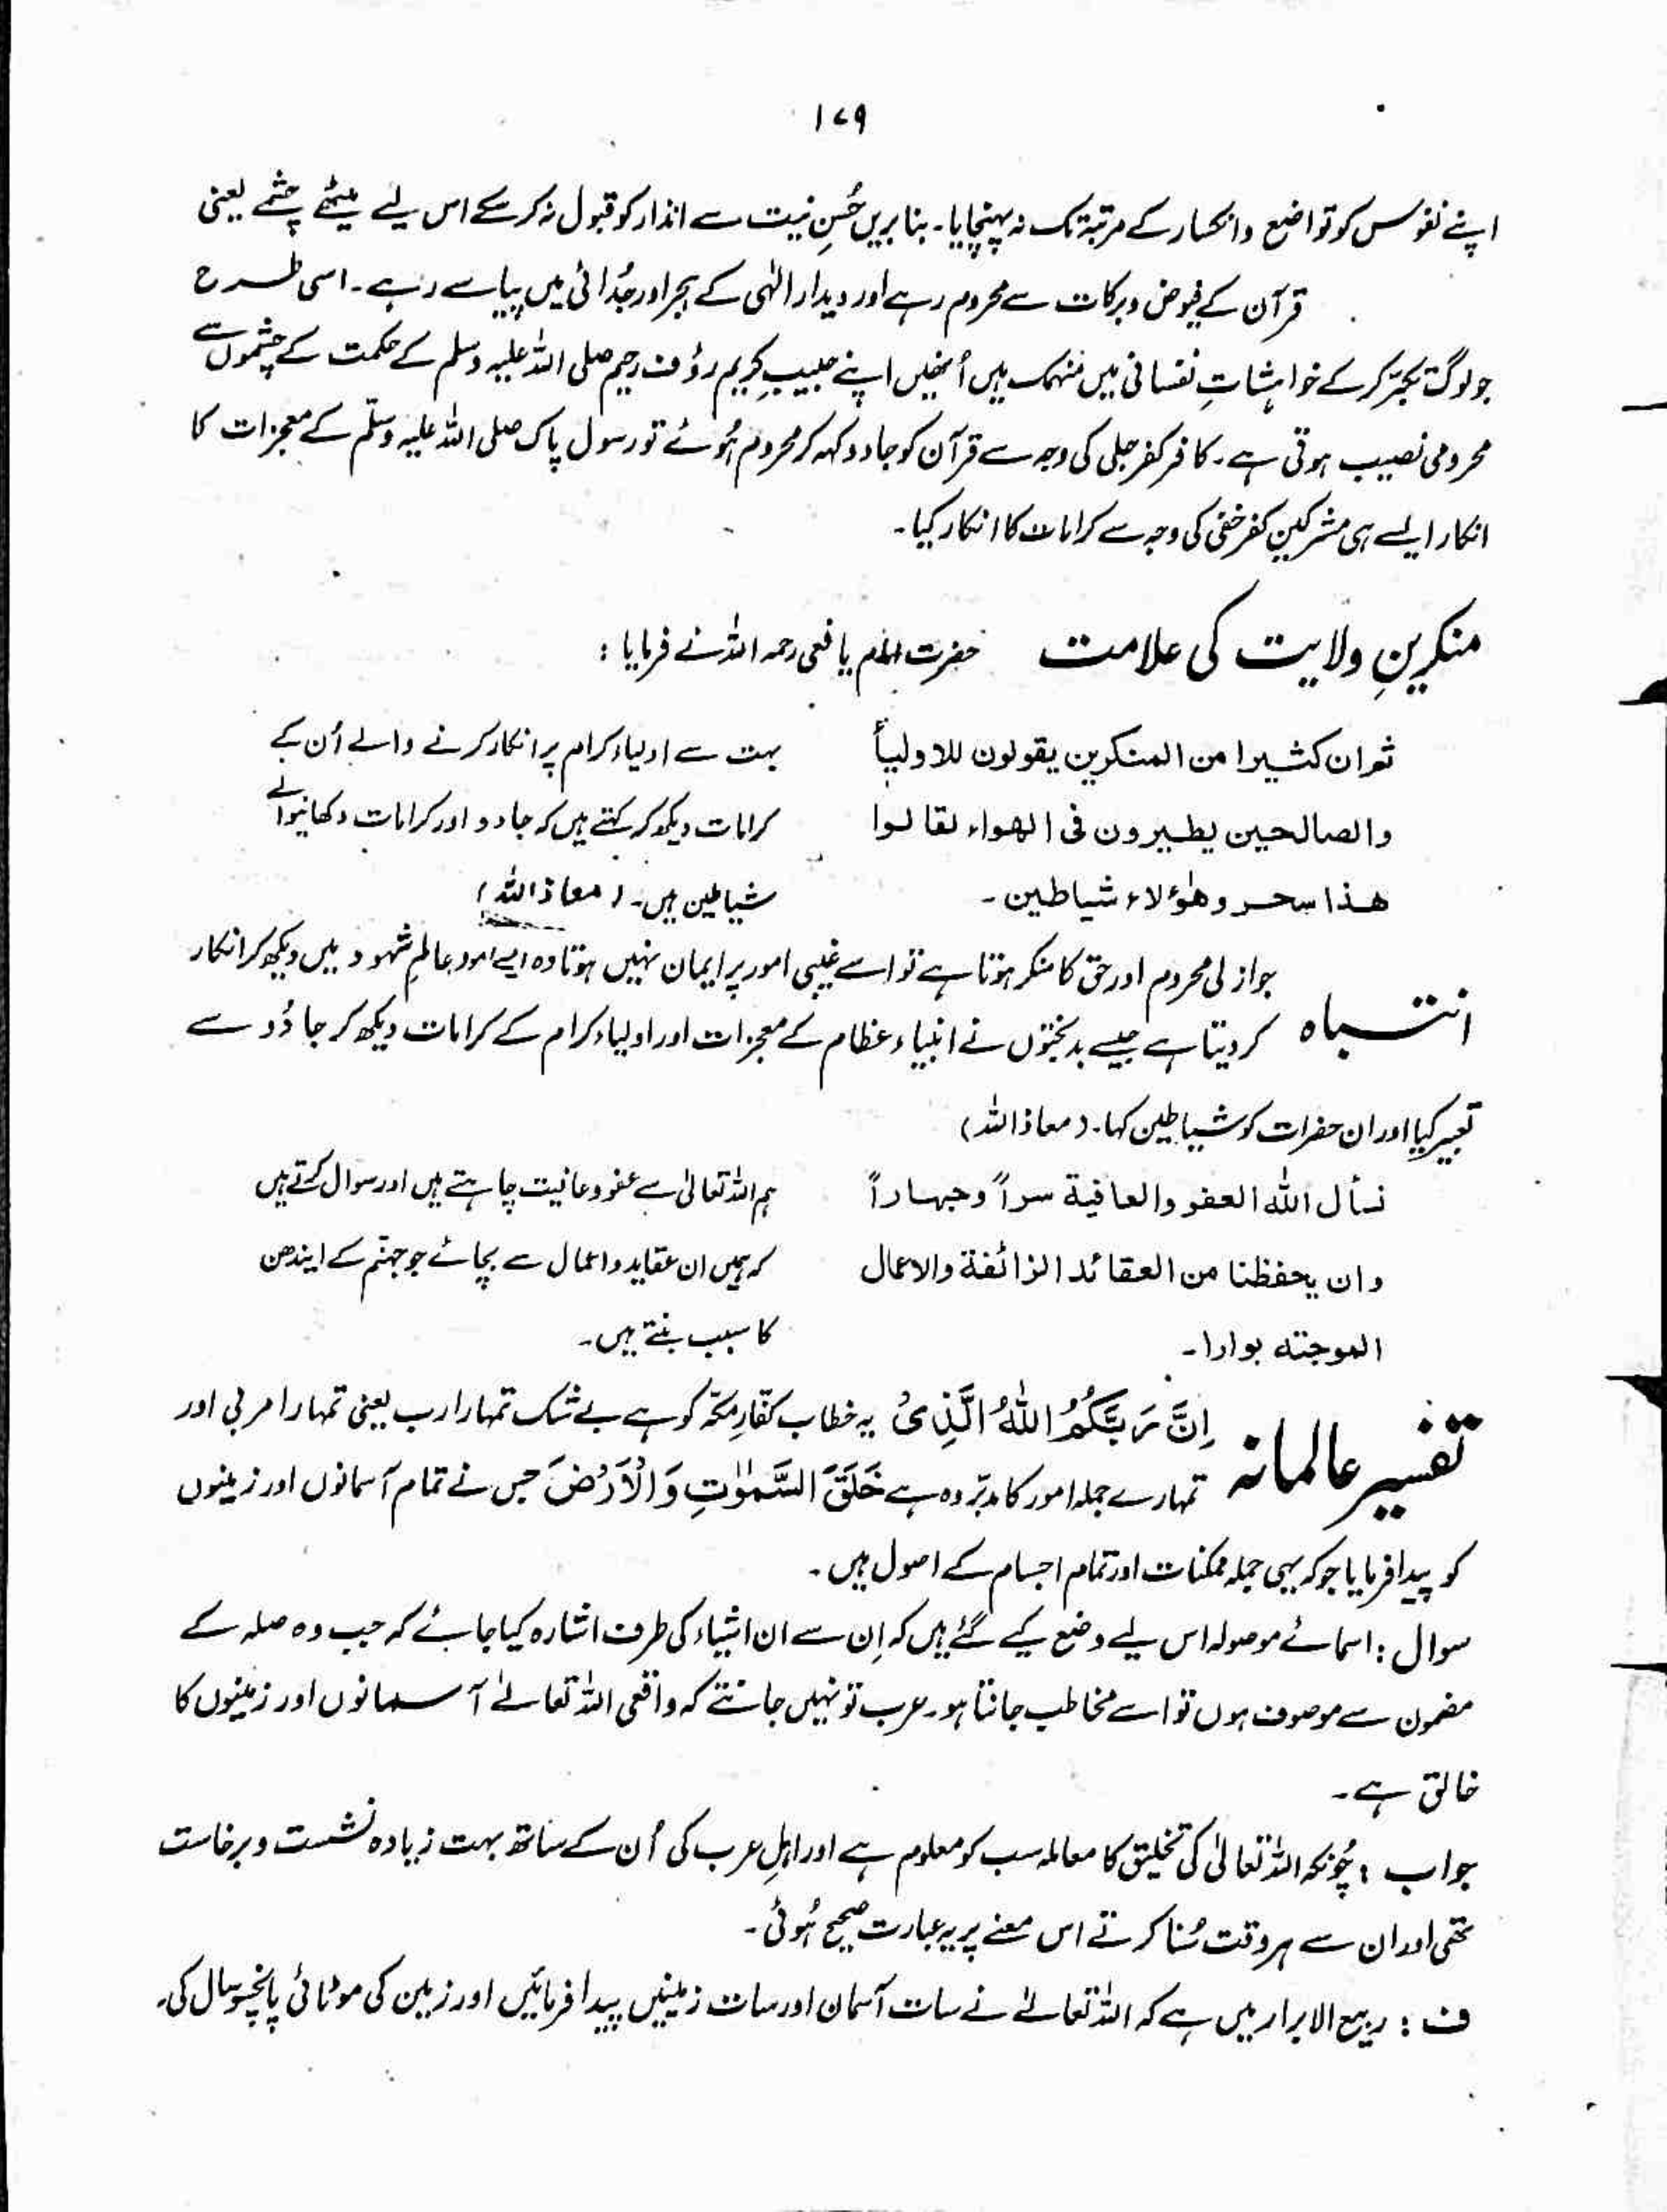 ۱۷۹
اپنے نفوس کو تواضع وانکسار کے مرتبۃ تک نہ پہنچایا۔ بنا بریں حُسنِ نیت سے انذار کو قبول نہ کر سکے اس لیے میٹھے چشمے یعنی
قرآن کے فیوض وبرکات سے محروم رہے اور دیدار الٰہی کے ہجر اور جُدائی میں پیاسے رہے۔ اسی طرح
جو لوگ تکبّر کر کے خواہشاتِ نفسانی میں منہمک ہیں اُنھیں اپنے حبیبِ کریم رؤف رحیم صلی اللہ علیہ وسلم کے حکمت کے چشموں سے
محرومی نصیب ہوتی ہے۔ کافر کفر جلی کی وجہ سے قرآن کو جادو کہہ کر محروم ہُوئے تو رسول پاک صلی اللہ علیہ وسلّم کے معجزات کا
انکار ایسے ہی مشرکین کفر خفی کی وجہ سے کرامات کا انکار کیا۔
منکرینِ ولایت کی علامت حضرت امام یافعی رحمہ اللہ نے فرمایا :
ثم ان کثیرا من المنکرین یقولون للاولیأ
والصالحین یطیرون فی الھواء لقالوا
ھذا سحر وھٰؤلاء شیاطین ۔
بہت سے اولیاء کرام پر انکار کرنے والے اُن کے
کرامات دیکھ کر کہتے ہیں کہ جادو اور کرامات دکھانیوالے
شیاطین ہیں۔ (معاذاللہ)
انتباہ جو ازلی محروم اور حق کا منکر ہوتا ہے تو اسے غیبی امور پر ایمان نہیں ہوتا وہ ایسے امور عالمِ شہود میں دیکھ کر انکار
کر دیتا ہے جیسے بدبختوں نے انبیاء عظام کے معجزات اور اولیاء کرام کے کرامات دیکھ کر جادُو سے
تعبیر کیا اور ان حضرات کو شیاطین کہا۔ (معاذاللہ)
نسأل اللہ العفو والعافیة سراً وجہاراً
وان یحفظنا من العقائد الزائفة والاعمال
الموجتہ بوارا۔
ہم اللہ تعالیٰ سے عفو وعافیت چاہتے ہیں اور سوال کرتے ہیں
کہ ہمیں ان عقاید و اعمال سے بچائے جو جہنّم کے ایندھن
کا سبب بنتے ہیں۔
تفسیر عالمانہ اِنَّ رَبَّکُمُ اللّٰہُ الَّذِیْ یہ خطاب کفّارِ مکّہ کو ہے بے شک تمہارا رب یعنی تمہارا مربی اور
تمہارے جملہ امور کا مدبّر وہ ہے خَلَقَ السَّمٰوٰتِ وَ الْاَرْضَ جس نے تمام آسمانوں اور زمینوں
کو پیدا فرمایا جو کہ یہی جملہ ممکنات اور تمام اجسام کے اصول ہیں ۔
سوال : اسمائے موصولہ اس لیے وضع کیے گئے ہیں کہ اِن سے ان اشیاء کی طرف اشارہ کیا جائے کہ جب وہ صلہ کے
مضمون سے موصوف ہوں تو اسے مخاطب جانتا ہو۔ عرب تو نہیں جانتے کہ واقعی اللہ تعالےٰ آسمانوں اور زمینوں کا
خالق ہے ۔
جواب : چُونکہ اللہ تعالیٰ کی تخلیق کا معاملہ سب کو معلوم ہے اور اہلِ عرب کی اُن کے ساتھ بہت زیادہ نشست و برخاست
تھی اور ان سے ہر وقت سُنا کرتے اس معنے پر یہ عبارت صحیح ہُوئی ۔
ف : ربیع الابرار میں ہے کہ اللہ تعالےٰ نے سات آسمان اور سات زمینیں پیدا فرمائیں اور زمین کی موٹائی پانچسو سال کی۔